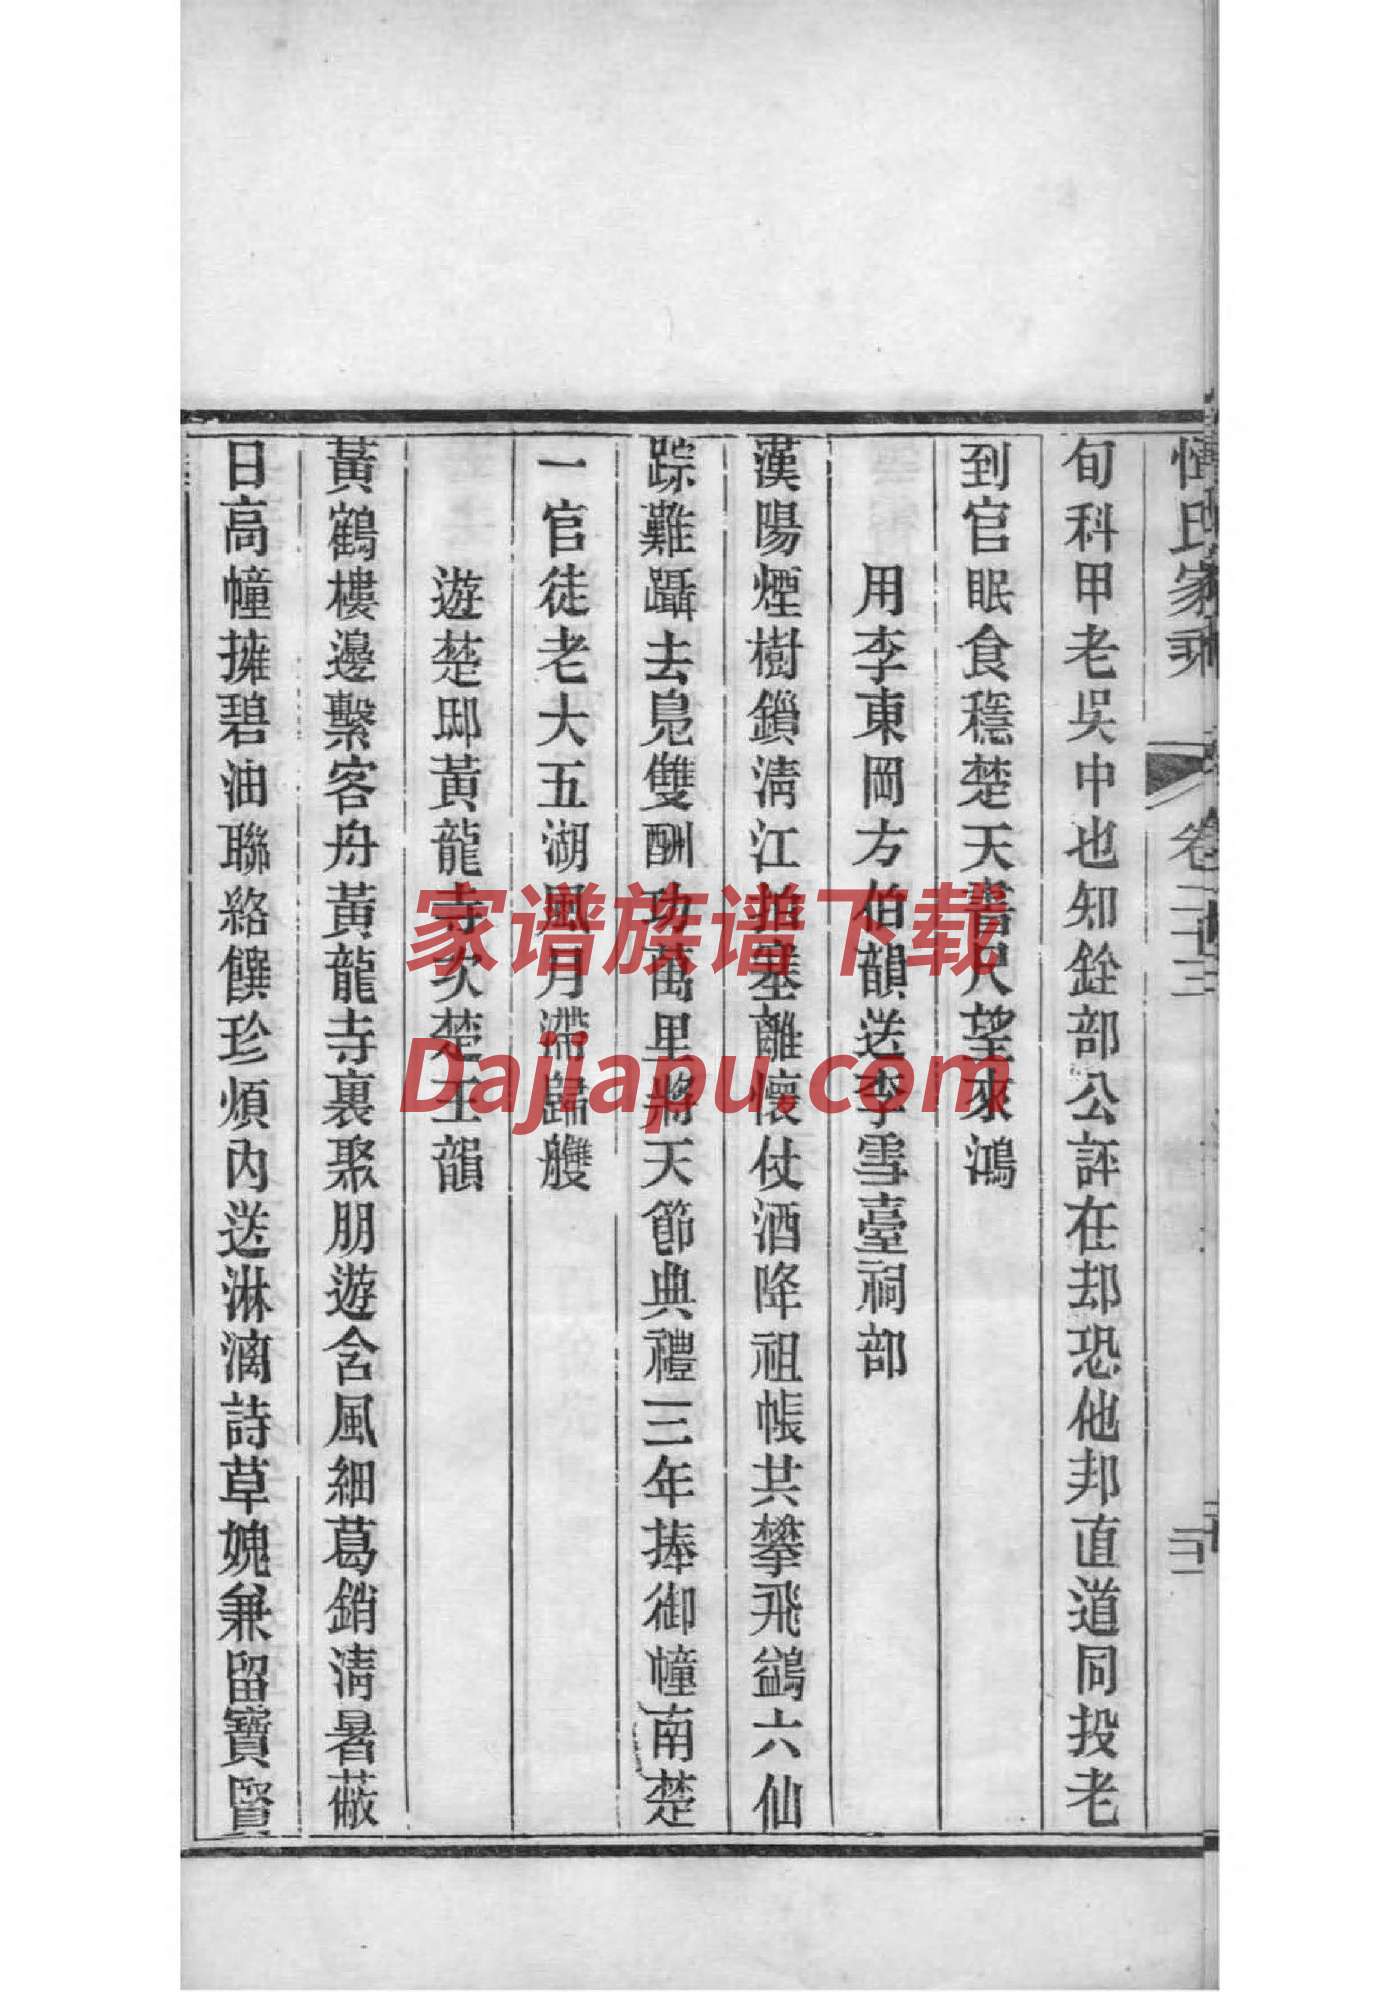 惲氏家乘
卷二十三
二
旬科甲老吳中也知銓部公評在却恐他邦直道同投老
到官眠食穩楚天書尺望來鴻
用李東岡方伯韻送李雪臺祠部
漢陽煙樹鎖淸江離懷仗酒降祖帳共攀飛鷁六仙
踪難躡去鳧雙酬功萬里將天節典禮三年捧御幢南楚
一官徒老大五湖風月滯歸艭
遊楚邸黃龍寺次楚王韻
黃鶴樓邊繫客舟黃龍寺裏聚朋遊含風細葛銷淸暑蔽
日高幢擁碧油聯絡饌珍煩內送淋漓詩草媿兼留寶賢
家谱族谱下载
Dajiapu.com